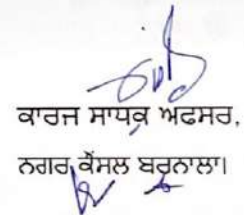 ਕਾਰਜ ਸਾਧਕ ਅਫਸਰ,
ਨਗਰ ਕੌਂਸਲ ਬਰਨਾਲਾ।